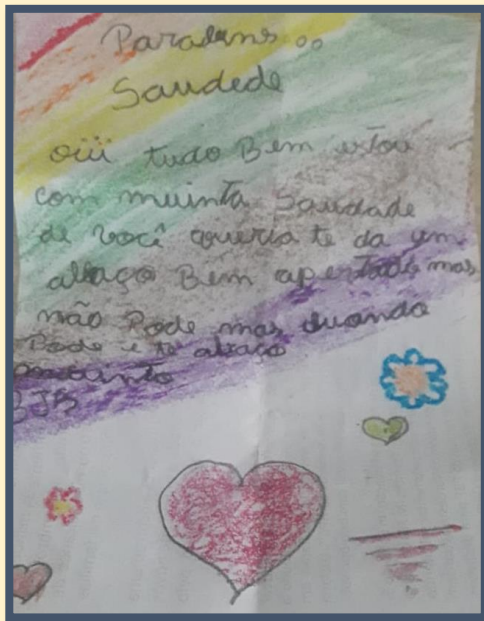 Parabens..
Saudede
oiii tudo Bem estou
com muinta saudade
de você queria te da um
abraço Bem apertado mas
não Pode mas quando
Pode i te abraço
muinto
BJB